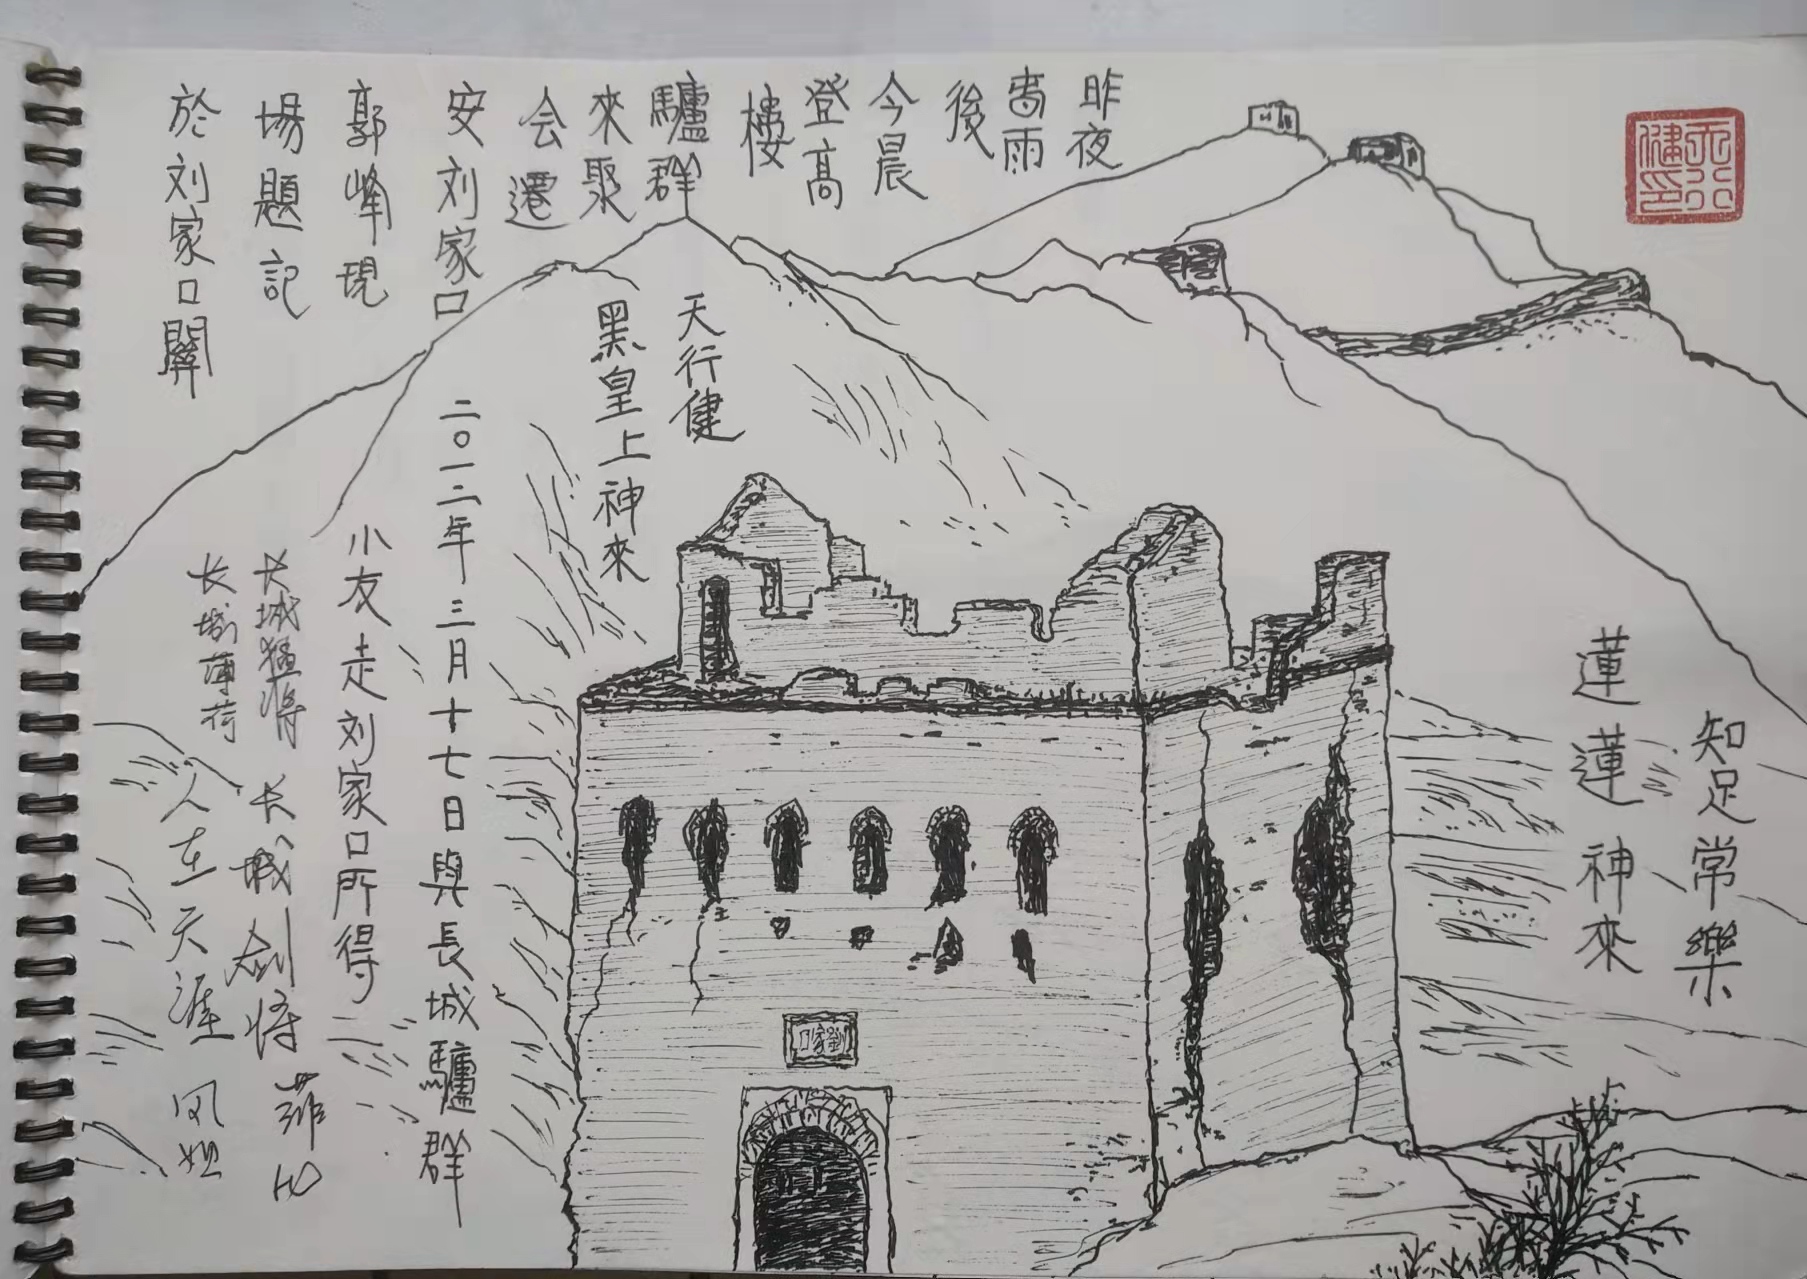 天行
健印
昨夜
旾雨
後
今晨
登高
樓
驢群
來聚
会遷
安刘家口
郭峰現
場題記
於刘家口關
天行健
黑皇上神來
知足常樂
蓮蓮神來
劉家口
二〇一二年三月十七日與長城驢群
小友走刘家口所得
长城猛将
长城薄荷
长城剑将
人在天涯
凤姐